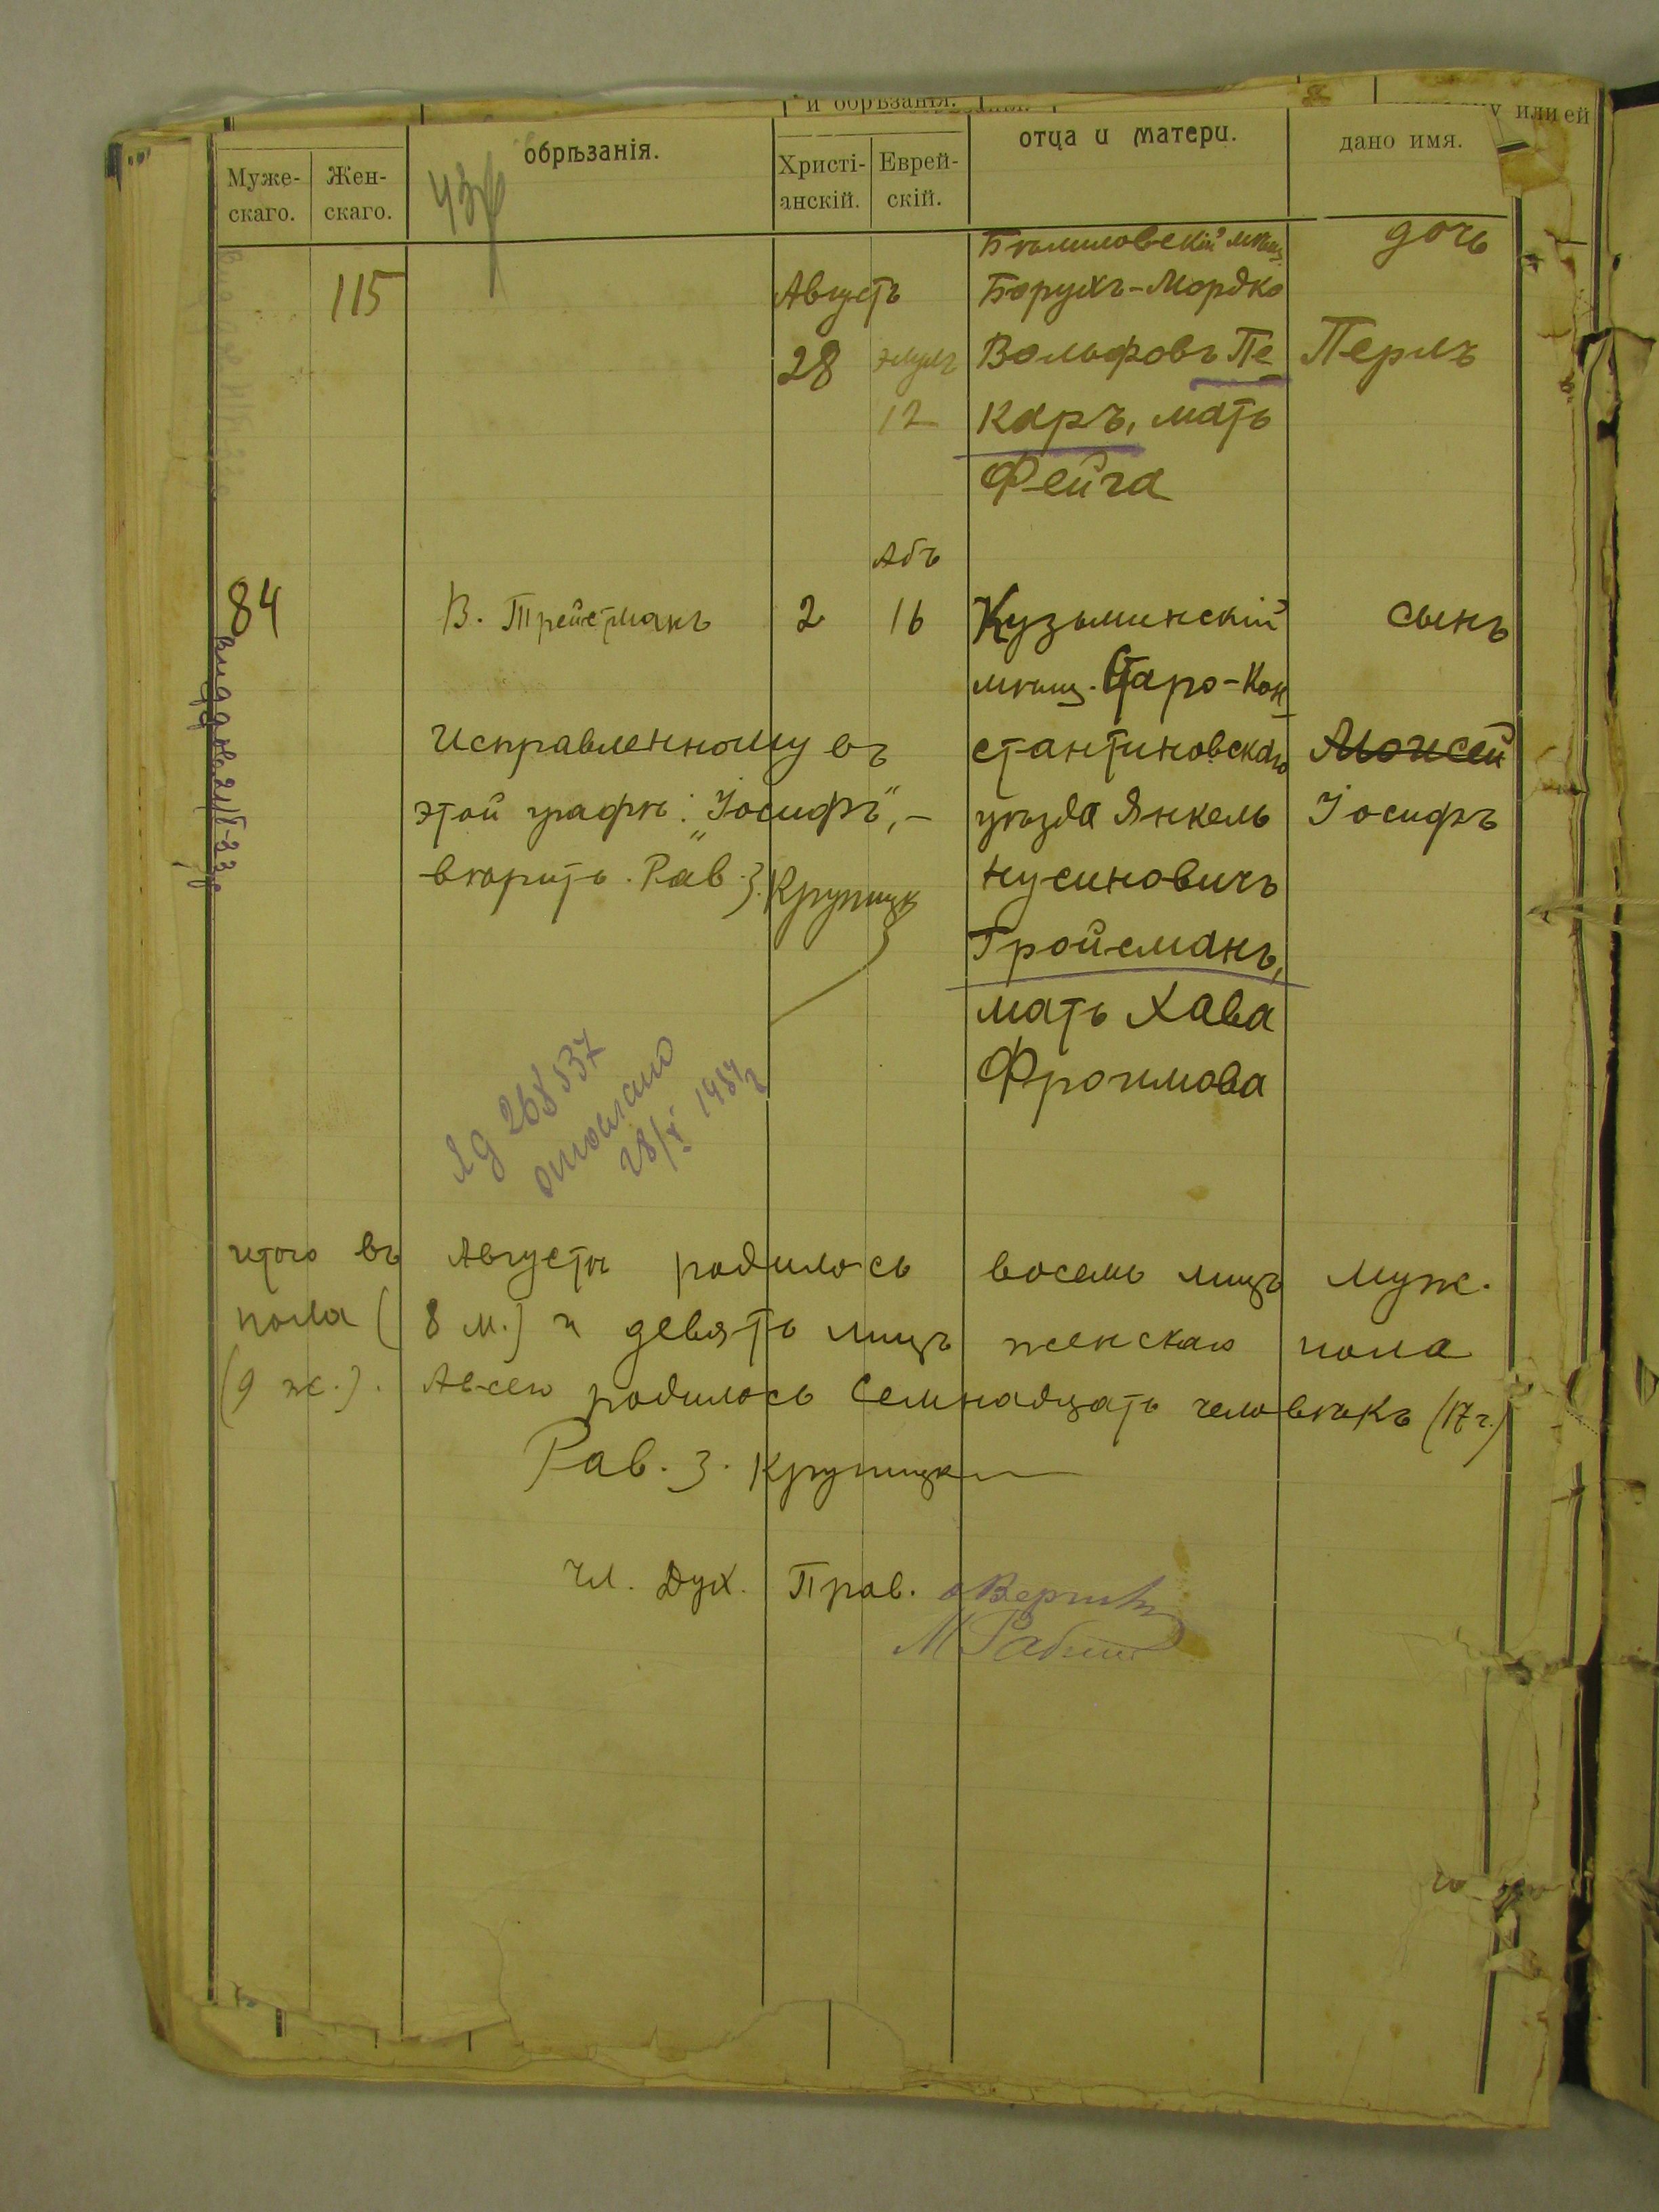 и обрѣзанія.
или ей
Муже-
скаго.
Жен-
скаго.
обрѣзанія.
Христі-
анскій.
Еврей-
скій.
отца и матери.
дано имя.
115
Августъ
28
Элулъ
12
мѣщ.
Борухъ-Мордко
Вольфовъ Пе
каръ, мать
Фейга
дочь
Перль
84
В. Тройсманъ
2
Абъ
16
Кузьминскій
мѣщ. Старо-Кон
стантиновскаго
уѣзда Янкель
Нусиновичъ
Гройсманъ,
мать Хава
Фроимова
сынъ
Мойсей
Іосифъ
Исправленному въ
этой графѣ: "Іосифъ", -
вѣрить. Рав. З. Крупицк
268537
отослано
28/X 1954 г
Итого въ Августѣ родилось восемь лицъ муж.
пола (8 м.) и девять лицъ женскаго пола
(9 ж.). Авсего родилось семнадцать человѣкъ (17 ч.)
Рав. З. Крупицк
Чл. Дух. Прав.